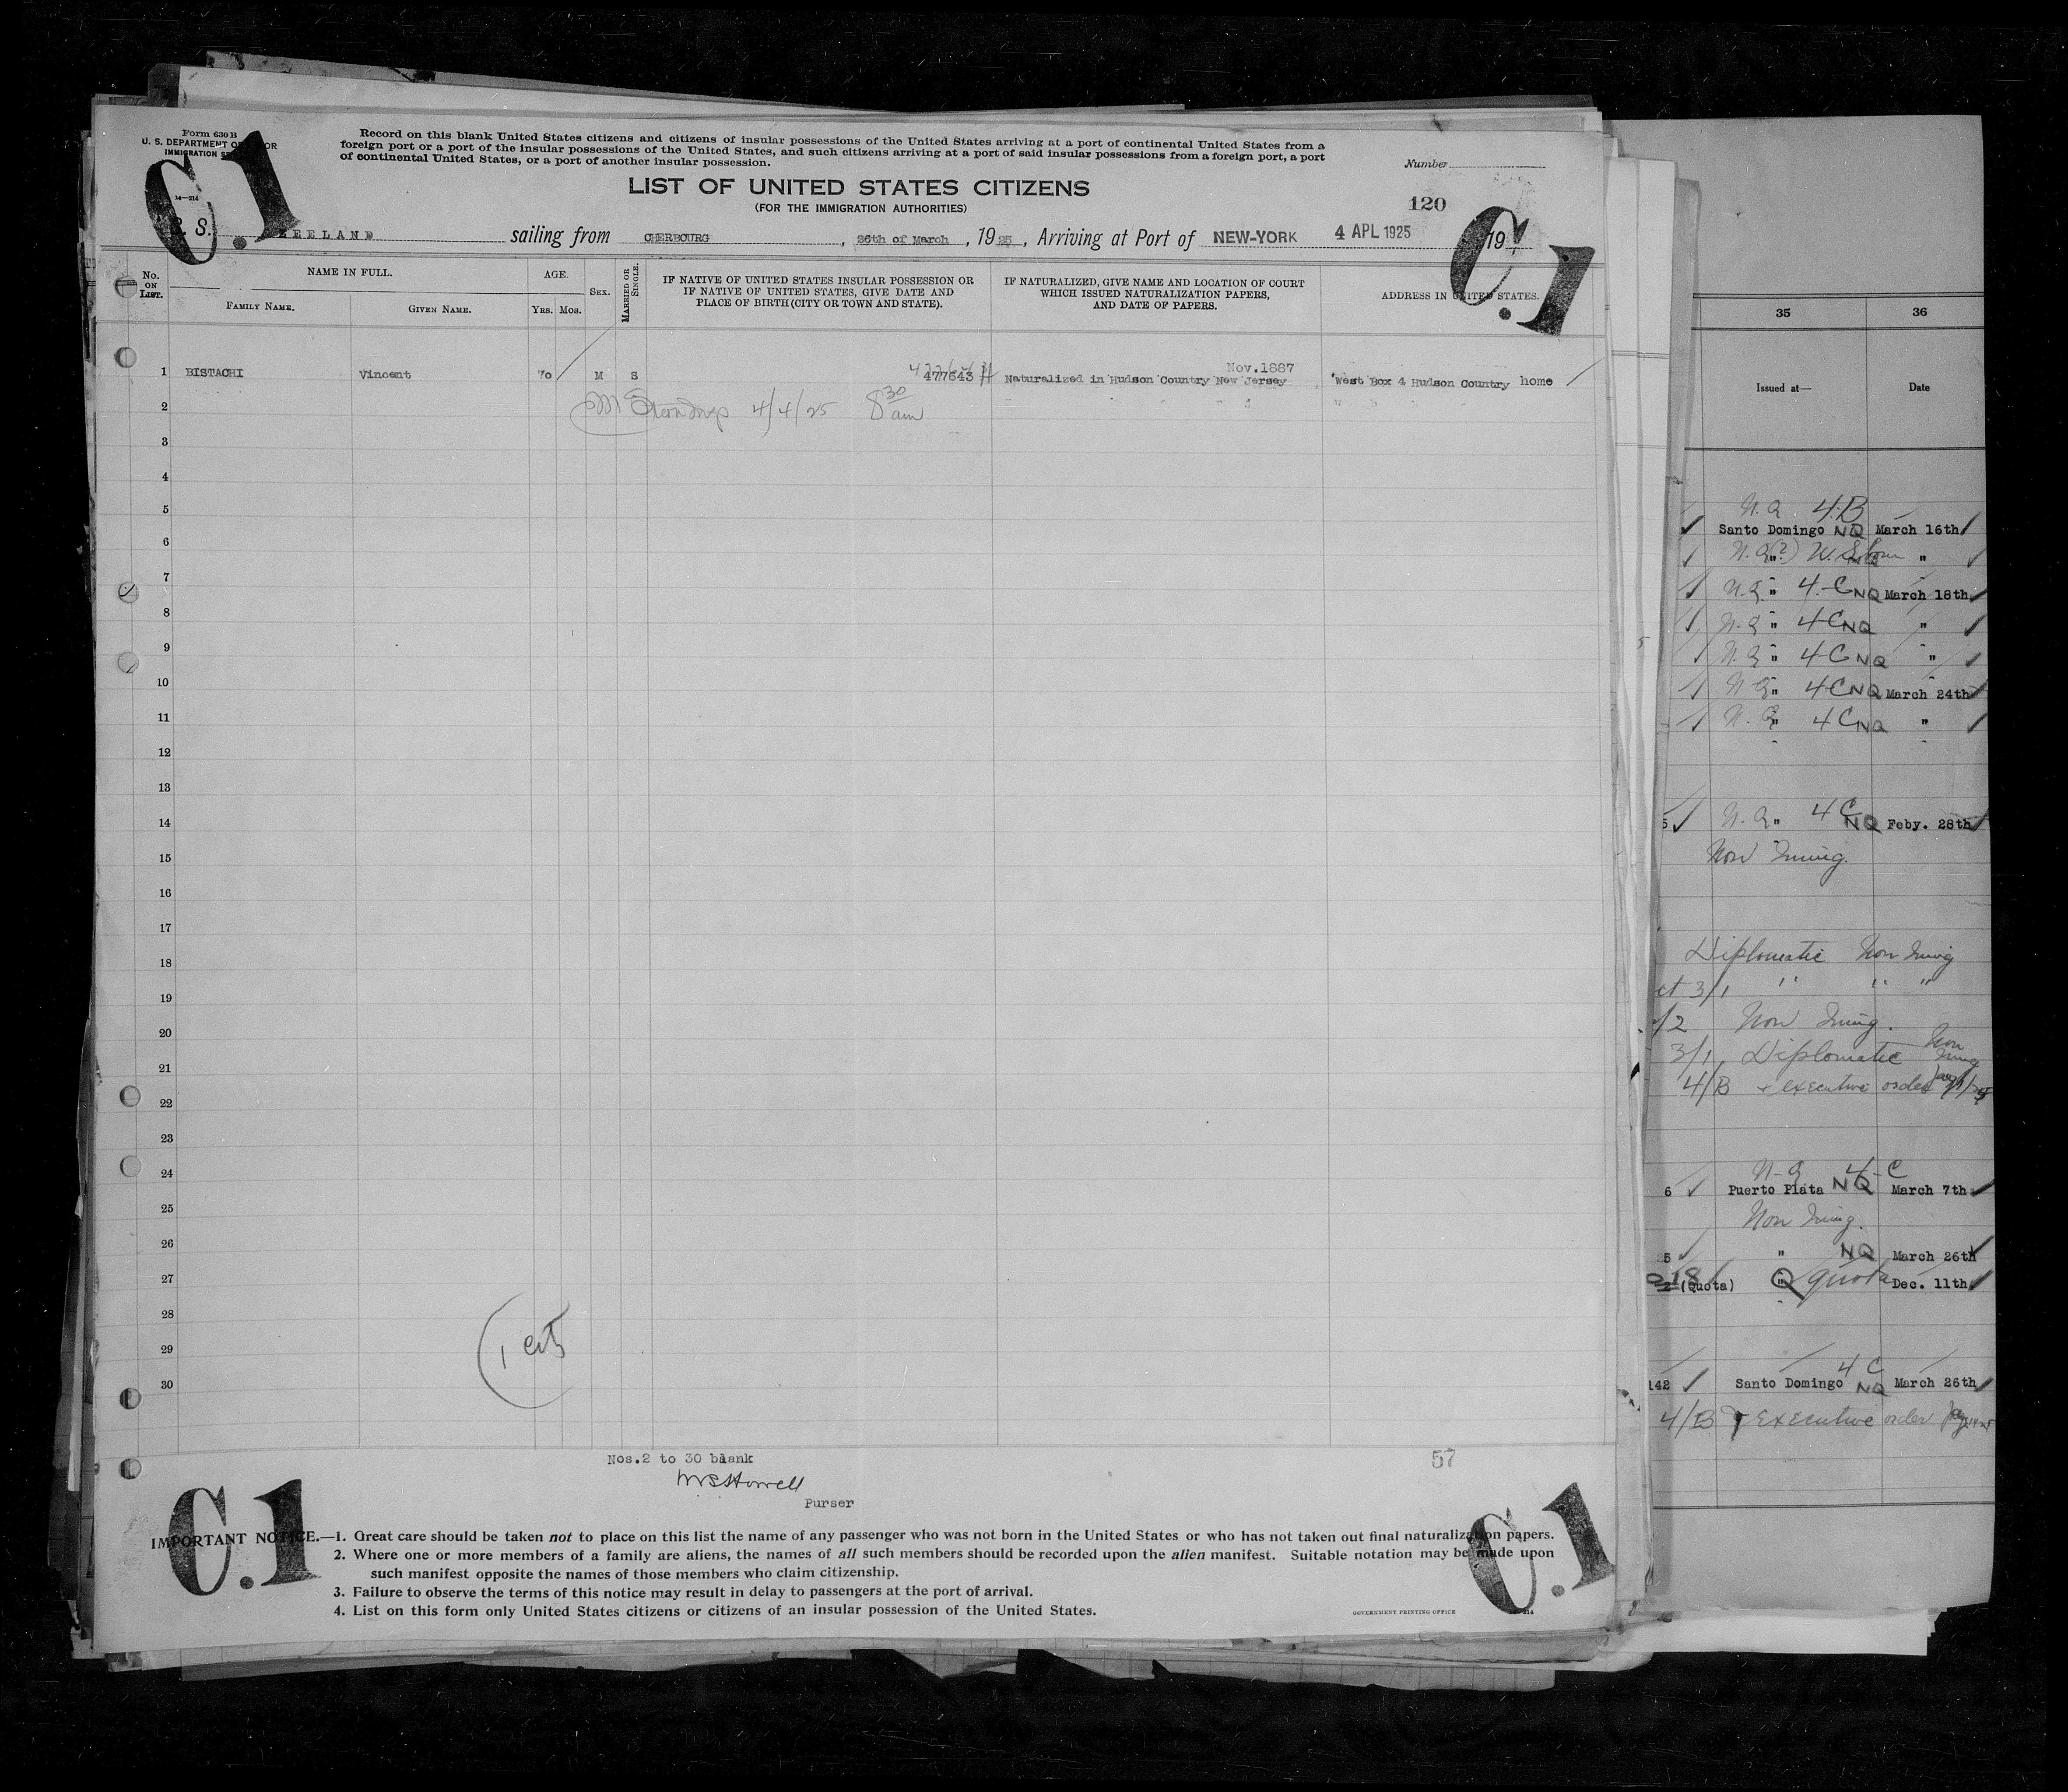 Form 630 B
U. S. DEPARTMENT OF LABOR
IMMIGRATION SERVICE
14—214
C.1
Record on this blank United States citizens and citizens of insular possessions of the United States arriving at a port of continental United States from a
foreign port or a port of the insular possessions of the United States, and such citizens arriving at a port of said insular possessions from a foreign port, a port
of continental United States, or a port of another insular possession.
Number
LIST OF UNITED STATES CITIZENS
(FOR THE IMMIGRATION AUTHORITIES)
120
C.1
S. S. ZEELAND sailing from CHERBOURG, 26th of March, 1925, Arriving at Port of NEW-YORK 4 APL 1925 19
No. ON LIST.
NAME IN FULL.
FAMILY NAME.
GIVEN NAME.
AGE.
YRS. MOS.
SEX.
MARRIED OR SINGLE.
IF NATIVE OF UNITED STATES INSULAR POSSESSION OR
IF NATIVE OF UNITED STATES, GIVE DATE AND
PLACE OF BIRTH (CITY OR TOWN AND STATE).
IF NATURALIZED, GIVE NAME AND LOCATION OF COURT
WHICH ISSUED NATURALIZATION PAPERS,
AND DATE OF PAPERS.
ADDRESS IN UNITED STATES.
Nov.1887
1 BISTACHI Vincent 70 M S 477643 Naturalized in Hudson Country New Jersey West Box 4 Hudson Country home
2 4/4/25 8 30 am
3
4
5
6
7
8
9
10
11
12
13
14
15
16
17
18
19
20
21
22
23
24
25
26
27
28
29
30
1 cit
Nos.2 to 30 blank
57
Purser
C.1
C.1
IMPORTANT NOTICE.—1. Great care should be taken not to place on this list the name of any passenger who was not born in the United States or who has not taken out final naturalization papers.
2. Where one or more members of a family are aliens, the names of all such members should be recorded upon the alien manifest. Suitable notation may be made upon
such manifest opposite the names of those members who claim citizenship.
3. Failure to observe the terms of this notice may result in delay to passengers at the port of arrival.
4. List on this form only United States citizens or citizens of an insular possession of the United States.
GOVERNMENT PRINTING OFFICE
35 36
Issued at— Date
N.Q. 4.B
Santo Domingo NQ March 16th
N.Q. " (?) "
N.Q. " 4-C NQ March 18th
N.Q. " 4C NQ "
N.Q. " 4C NQ "
N.Q. " 4C NQ March 24th
N.Q. " 4C NQ "
5 N.Q. " 4C NQ Feby. 28th
Non Immig.
Diplomatic Non Immig
ct 3/1 " " "
/2 Non Immig.
3/1 Diplomatic Non Immig
4/B + executive order
N-Q 4-C
6 Puerto Plata NQ March 7th
Non Immig.
25 " NQ March 26th
(Quota) " Q quota Dec. 11th
4 C
142 Santo Domingo NQ March 26th
4/B Executive order